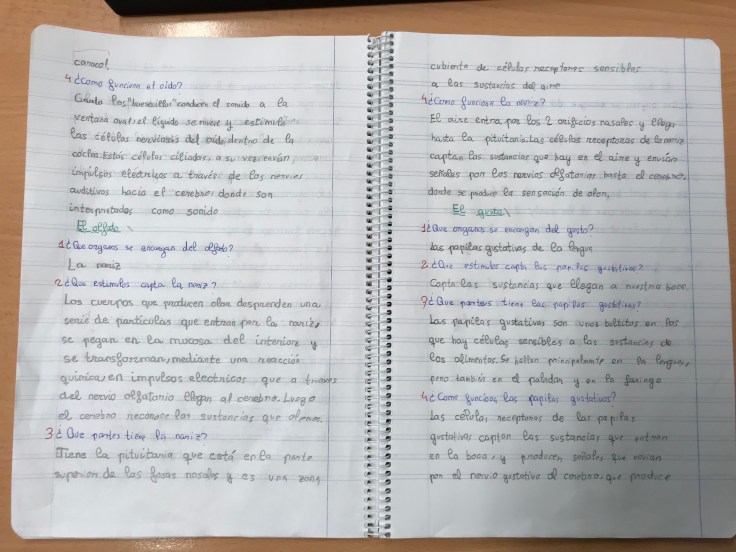 caracol.
4 ¿Como funciona el oido?
Cuando los "huesecillos" conducen el sonido a la
ventana oval, el líquido se mueve y estimula
las células nerviosas del oido, dentro de la
cóclea. Estás células ciliadas, a su vez, envían
impulsos eléctricos a través de los nervios
auditivos hacia el cerebro, donde son
interpretados como sonido
El olfato
1 ¿Que organos se encargan del olfato?
La nariz
2 ¿Que estimulos capta la nariz?
Los cuerpos que producen olor desprenden una
serie de partículas que entran por la nariz,
se pegan en la mucosa del interior y
se transforman, mediante una reacción
química, en impulsos electricos que a traves
del nervio olfatorio llegan al cerebro. Luego
el cerebro reconoce las sustancias que olemos.
3 ¿Que partes tiene la nariz?
Tiene la pituitaria que está en la parte
superior de las fosas nasales y es una zona
cubierta de células receptoras sensibles
a las sustancias del aire
4 ¿Como funciona la nariz?
El aire entra por los 2 orificios nasales y llega
hasta la pituitaria. Las células receptoras de la nariz
captan las sustancias que hay en el aire y envían
señales por los nervios olfatorios hasta el cerebro,
donde se produce la sensación de olor,
El gusto
1 ¿Que organos se encargan del gusto?
Las papilas gustativas de la lengua
2 ¿Que estimulos capta las papilas gustativas?
Capta las sustancias que llegan a nuestra boca
3 ¿Que partes tiene las papilas gustativas?
Las papilas gustativas son unos bultitos en los
que hay células sensibles a las sustancias de
los alimentos. Se hallan principalmente en la lengua,
pero también en el paladar y en la faringe
4 ¿Como funciona las papilas gustativas?
Las células receptoras de las papilas
gustativas captan las sustancias que entran
en la boca, y producen señales que viajan
por el nervio gustativo al cerebro, que produce